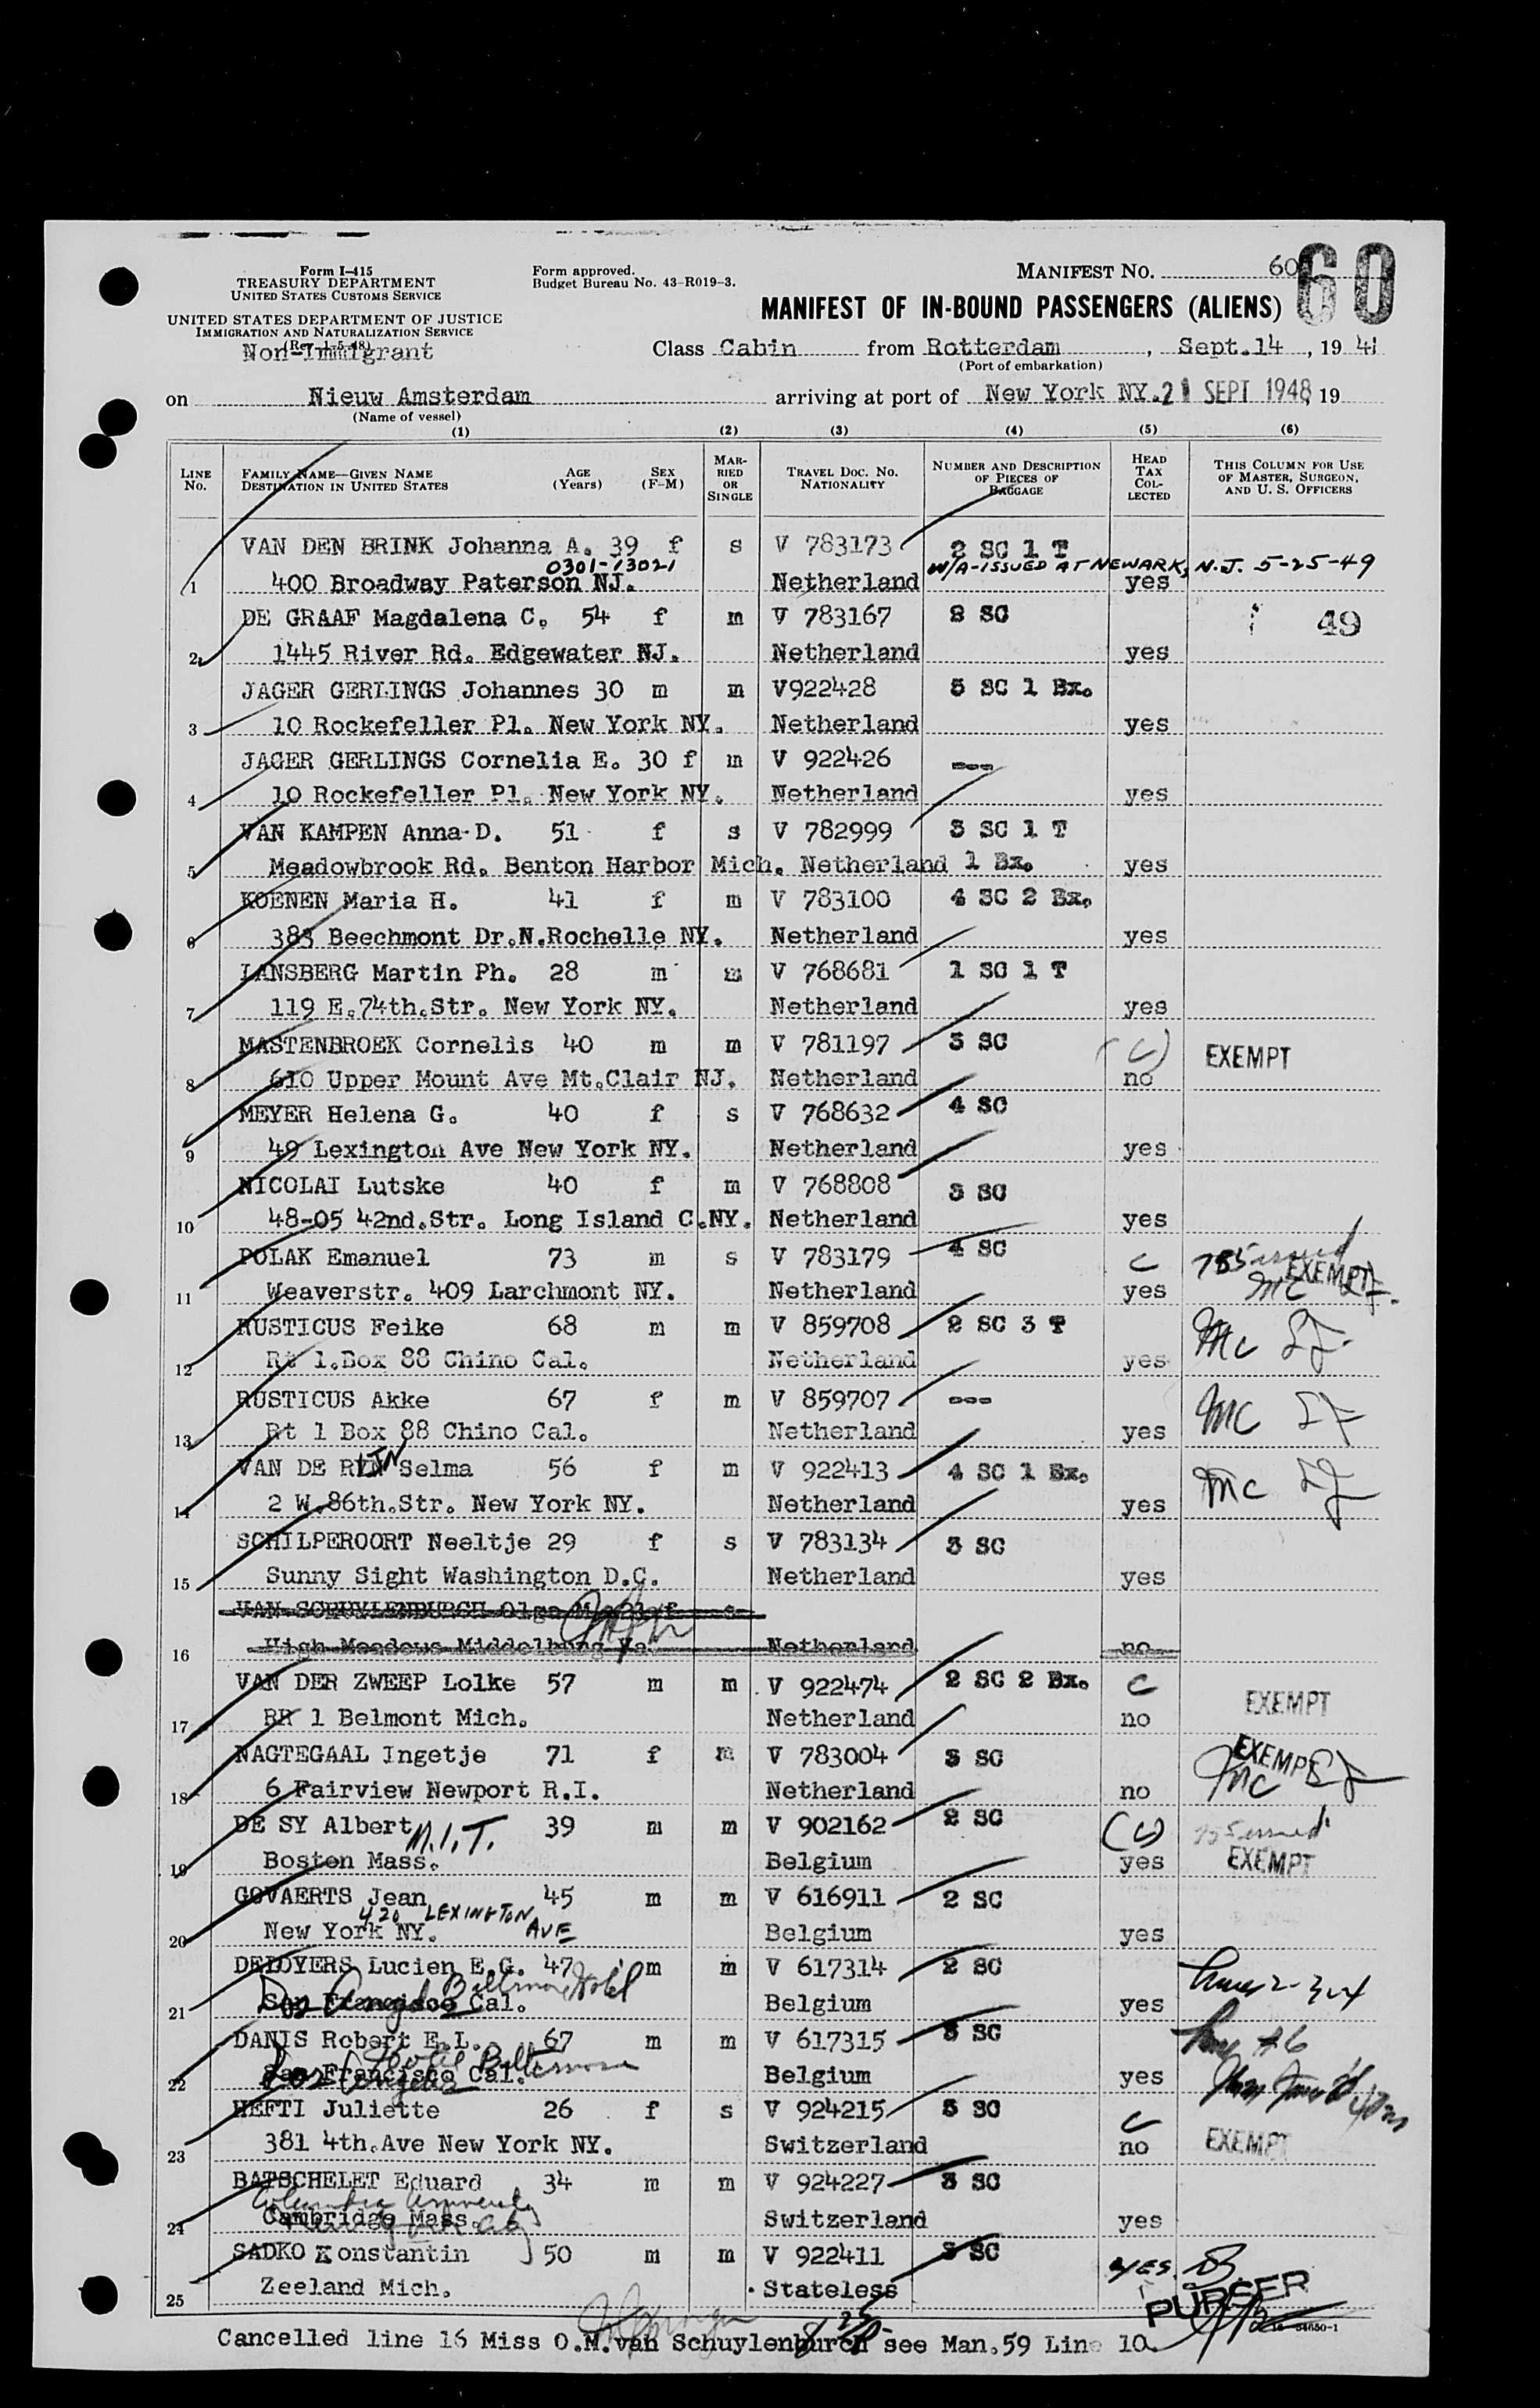 Form I-415
TREASURY DEPARTMENT
UNITED STATES CUSTOMS SERVICE
UNITED STATES DEPARTMENT OF JUSTICE
IMMIGRATION AND NATURALIZATION SERVICE
(Rev. 1-5-48)
Non-Immigrant
Form approved.
Budget Bureau No. 43-R019-3.
MANIFEST NO. 60
60
MANIFEST OF IN-BOUND PASSENGERS (ALIENS)
Class Cabin from Rotterdam, Sept.14, 19 4
(Port of embarkation)
on Nieuw Amsterdam arriving at port of New York NY. 21 SEPT 1948, 19
(Name of vessel)
(1) (2) (3) (4) (5) (6)
LINE NO. FAMILY NAME—GIVEN NAME DESTINATION IN UNITED STATES AGE (Years) SEX (F-M) MARRIED OR SINGLE TRAVEL DOC. NO. NATIONALITY NUMBER AND DESCRIPTION OF PIECES OF BAGGAGE HEAD TAX COLLECTED THIS COLUMN FOR USE OF MASTER, SURGEON, AND U. S. OFFICERS
VAN DEN BRINK Johanna A. 39 f s V 783173 2 SC 1 T
0301-13021 W/A-ISSUED AT NEWARK, N.J. 5-25-49
1 400 Broadway Paterson NJ. Netherland yes
DE GRAAF Magdalena C. 54 f m V 783167 2 SC 49
2 1445 River Rd. Edgewater NJ. Netherland yes
JAGER GERLINGS Johannes 30 m m V922428 5 SC 1 Bx.
3 10 Rockefeller Pl. New York NY. Netherland yes
JAGER GERLINGS Cornelia E. 30 f m V 922426 ---
4 10 Rockefeller Pl. New York NY. Netherland yes
VAN KAMPEN Anna D. 51 f s V 782999 3 SC 1 T
5 Meadowbrook Rd. Benton Harbor Mich. Netherland 1 Bx. yes
KOENEN Maria H. 41 f m V 783100 4 SC 2 Bx.
6 383 Beechmont Dr.N.Rochelle NY. Netherland yes
LANSBERG Martin Ph. 28 m m V 768681 1 SC 1 T
7 119 E.74th.Str. New York NY. Netherland yes
MASTENBROEK Cornelis 40 m m V 781197 3 SC (C) EXEMPT
8 610 Upper Mount Ave Mt.Clair NJ. Netherland no
MEYER Helena G. 40 f s V 768632 4 SC
9 49 Lexington Ave New York NY. Netherland yes
NICOLAI Lutske 40 f m V 768808 3 SC
10 48-05 42nd.Str. Long Island C.NY. Netherland yes
POLAK Emanuel 73 m s V 783179 4 SC C issued EXEMPT
11 Weaverstr. 409 Larchmont NY. Netherland yes mc
RUSTICUS Feike 68 m m V 859708 2 SC 3 T mc
12 Rt 1.Box 88 Chino Cal. Netherland yes
RUSTICUS Akke 67 f m V 859707 --- mc
13 Rt 1 Box 88 Chino Cal. Netherland yes
VAN DE RIJN Selma 56 f m V 922413 4 SC 1 Bx. mc
14 2 W.86th.Str. New York NY. Netherland yes
SCHILPEROORT Neeltje 29 f s V 783134 3 SC
15 Sunny Sight Washington D.C. Netherland yes
VAN SCHUYLENBURCH Olga M. 21 f s
16 High Meadows Middelburg Va. Netherland no
VAN DER ZWEEP Lolke 57 m m V 922474 2 SC 2 Bx. C EXEMPT
17 RR 1 Belmont Mich. Netherland no
NAGTEGAAL Ingetje 71 f m V 783004 3 SC EXEMPT
18 6 Fairview Newport R.I. Netherland no mc
DE SY Albert M.I.T. 39 m m V 902162 2 SC (C) issued
19 Boston Mass. Belgium yes EXEMPT
GOVAERTS Jean 45 m m V 616911 2 SC
420 LEXINGTON AVE
20 New York NY. Belgium yes
DELOYERS Lucien E.G. 47 m m V 617314 2 SC
Los Angeles Biltmore Hotel
21 San Francisco Cal. Belgium yes
DANIS Robert E.L. 67 m m V 617315 3 SC
Los Angeles Hotel Biltmore
22 San Francisco Cal. Belgium yes
HEFTI Juliette 26 f s V 924215 3 SC C
23 381 4th.Ave New York NY. Switzerland no EXEMPT
BATSCHELET Eduard 34 m m V 924227 3 SC
Columbia University
24 Cambridge Mass. Switzerland yes
SADKO Konstantin 50 m m V 922411 3 SC YES.
25 Zeeland Mich. Stateless
PURSER
Cancelled line 16 Miss O.M.van Schuylenburch see Man.59 Line 10.